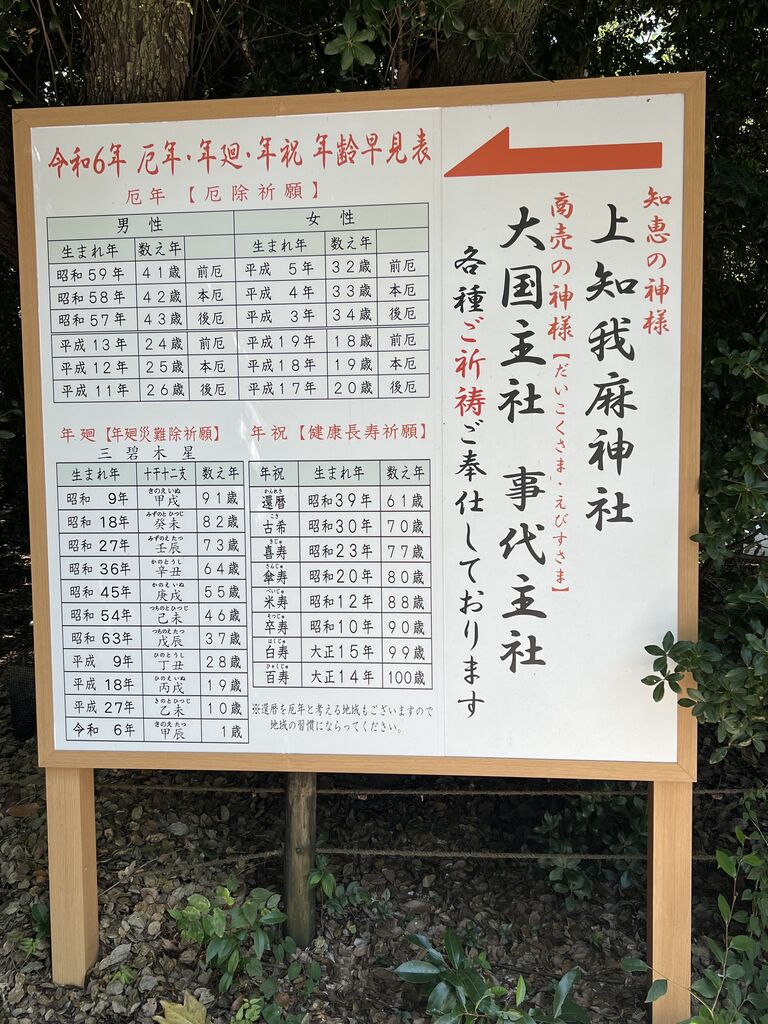 令和6年 厄年・年廻・年祝 年齢早見表
厄年【厄除祈願】
男性 女性
生まれ年 数え年 生まれ年 数え年
昭和59年 41歳 前厄 平成 5年 32歳 前厄
昭和58年 42歳 本厄 平成 4年 33歳 本厄
昭和57年 43歳 後厄 平成 3年 34歳 後厄
平成13年 24歳 前厄 平成19年 18歳 前厄
平成12年 25歳 本厄 平成18年 19歳 本厄
平成11年 26歳 後厄 平成17年 20歳 後厄
年廻【年廻災難除祈願】
三碧木星
生まれ年 十干十二支 数え年
きのえいぬ
昭和 9年 甲戌 91歳
みずのとひつじ
昭和18年 癸未 82歳
みずのえたつ
昭和27年 壬辰 73歳
かのとうし
昭和36年 辛丑 64歳
かのえいぬ
昭和45年 庚戌 55歳
つちのとひつじ
昭和54年 己未 46歳
つちのえたつ
昭和63年 戊辰 37歳
ひのとうし
平成 9年 丁丑 28歳
ひのえいぬ
平成18年 丙戌 19歳
きのとひつじ
平成27年 乙未 10歳
きのえたつ
令和 6年 甲辰 1歳
年祝【健康長寿祈願】
年祝 生まれ年 数え年
かんれき
還暦 昭和39年 61歳
こき
古希 昭和30年 70歳
きじゅ
喜寿 昭和23年 77歳
さんじゅ
傘寿 昭和20年 80歳
べいじゅ
米寿 昭和12年 88歳
そつじゅ
卒寿 昭和10年 90歳
はくじゅ
白寿 大正15年 99歳
ひゃくじゅ
百寿 大正14年 100歳
※還暦を厄年と考える地域もございますので
地域の習慣にならってください。
知恵の神様
上知我麻神社
商売の神様【だいこくさま・えびすさま】
大国主社 事代主社
各種ご祈祷ご奉仕しております